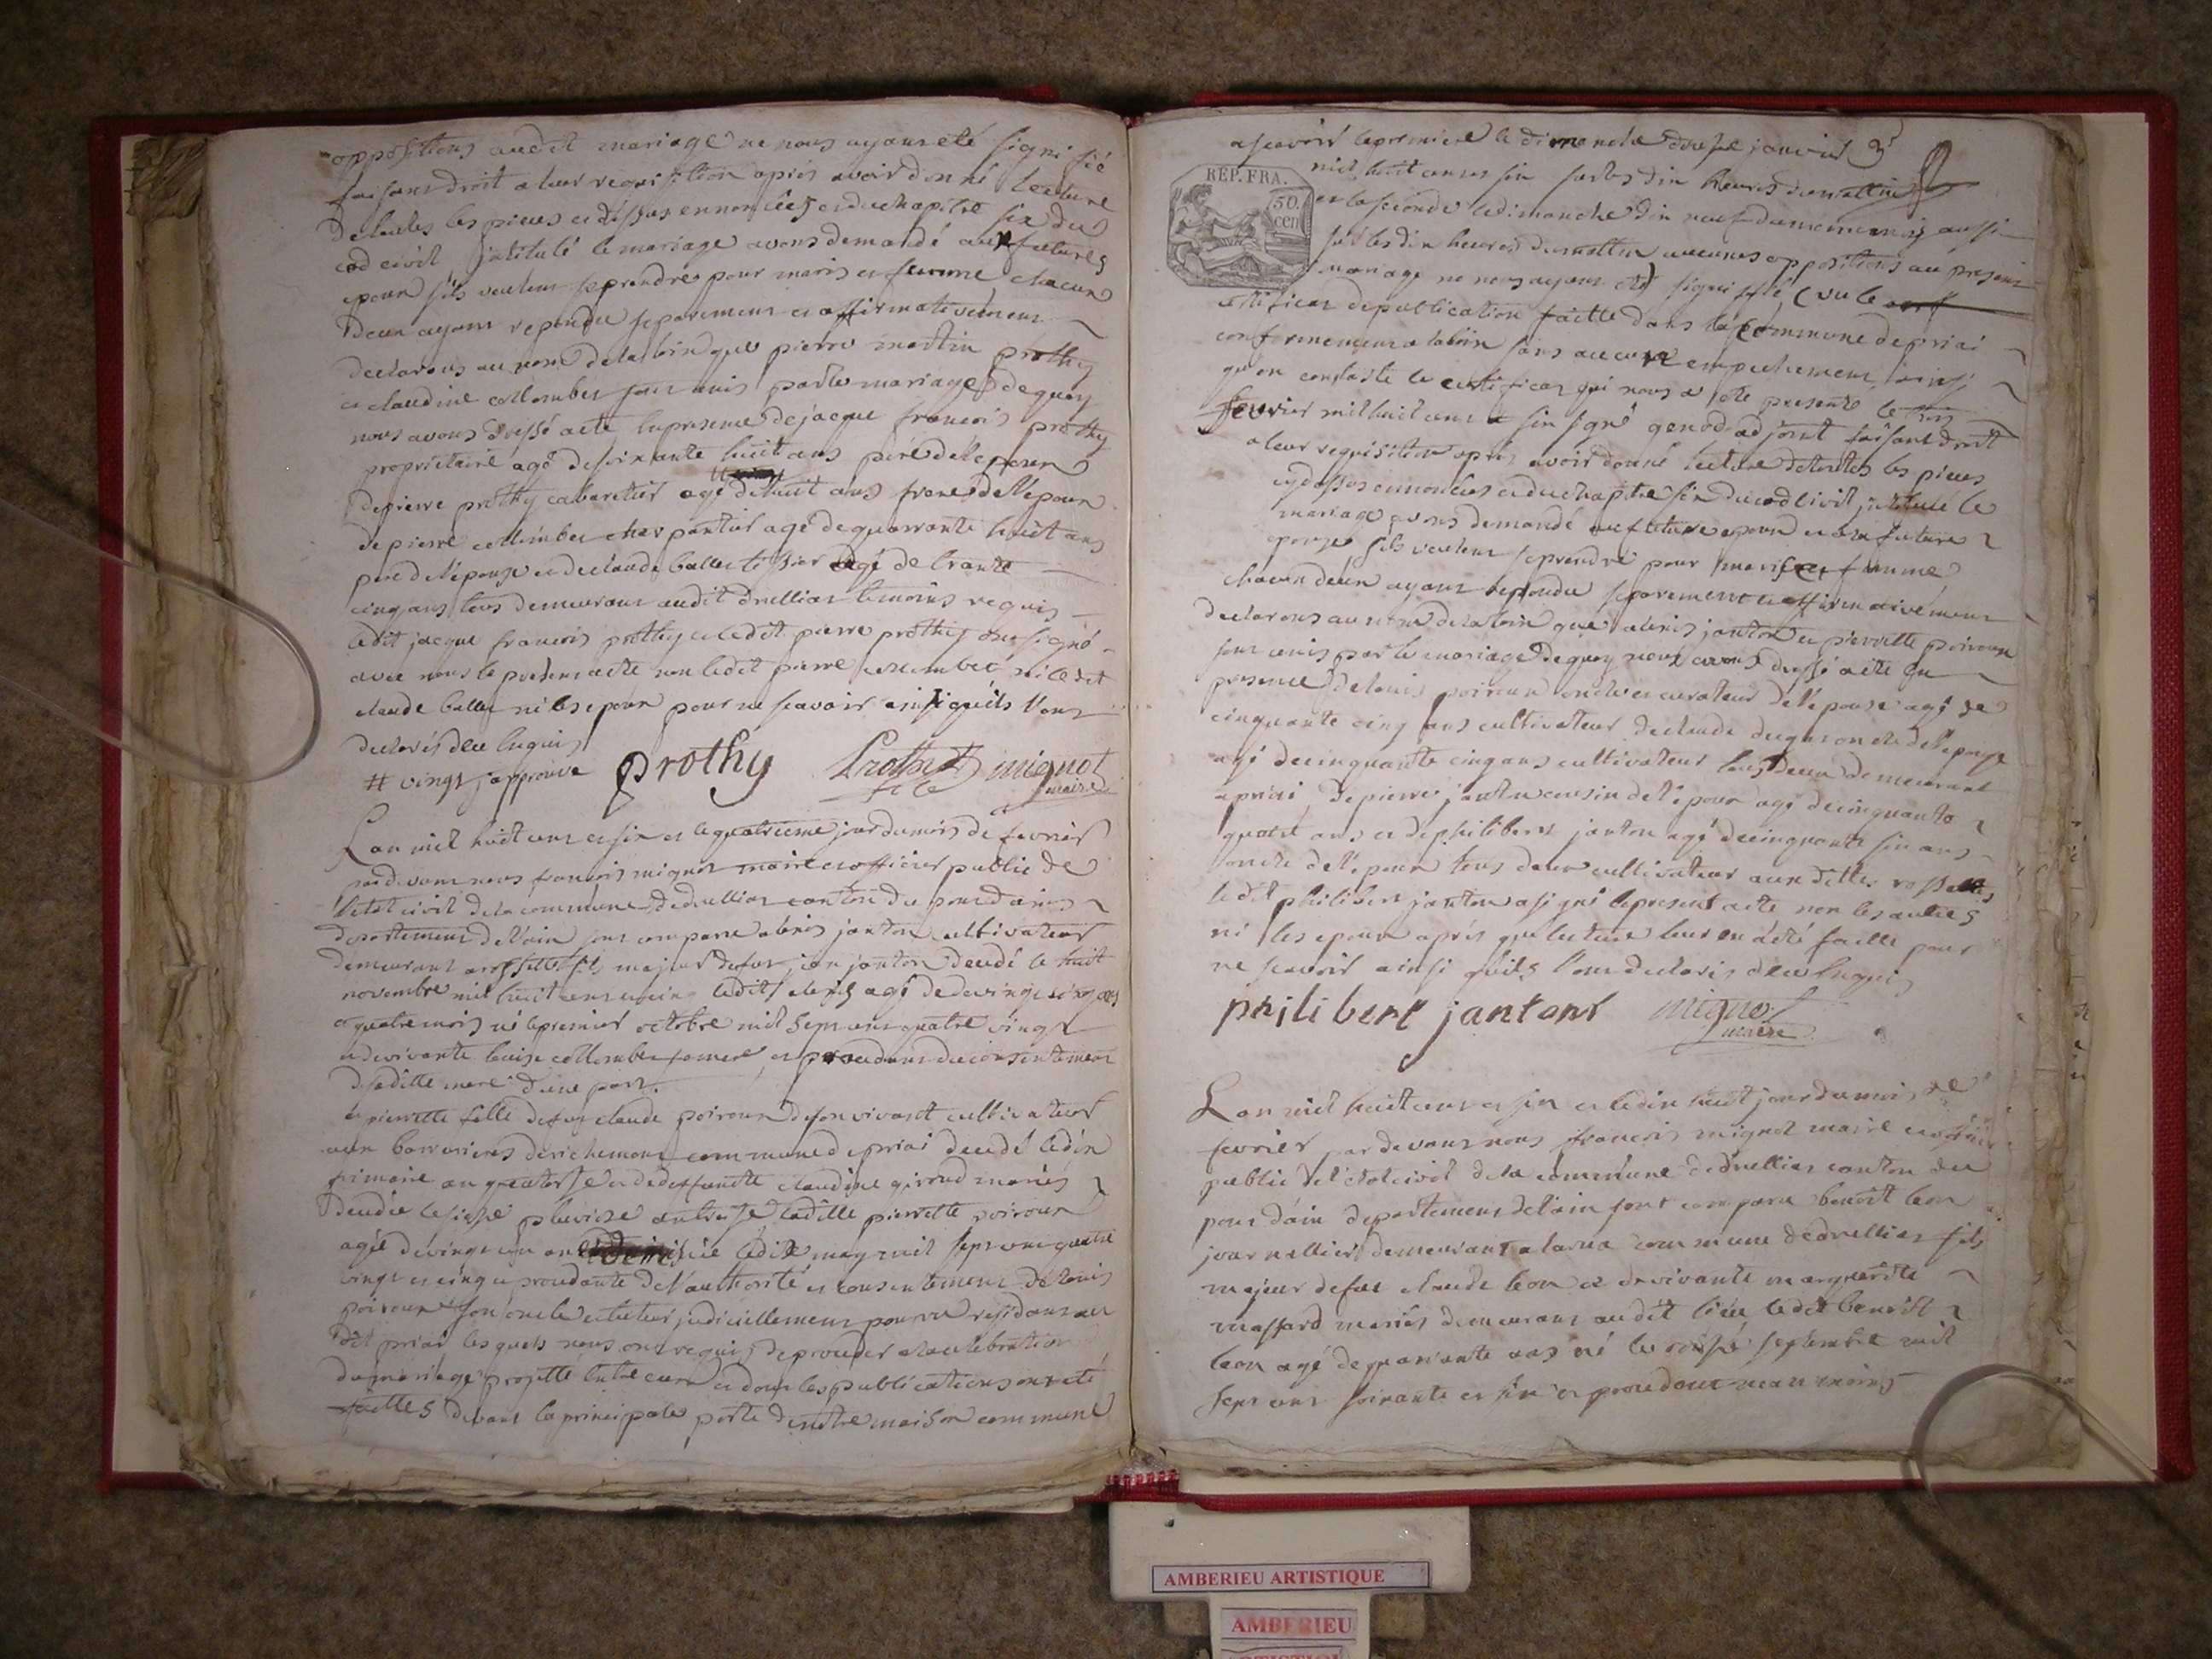 oppositions audit mariage ne nous ayant eté signi fié
faisant droit a leur requisition aprés avoir donné lecture
de toutes les pieces cy dessus ennoncées et du chapitre six du
cod civil intitulé le mariage avons demandé aux futures
epoux sils veulent se prendre pour maris et femme chacun
deux ayant repondu separement et affirmativement
declarons au nom de la loix que pierre martin prothy
et claudine collombet sont unis par le mariage de quoy
nous avons dressé acte en presence de jacque francois prothy
propriétaire agé de soixante huit ans pére de lépoux
de pierre prothy cabaretier agé de huit ans frere de l'époux
de pierre collombet charpantier agé de quarrante huit ans
pere de l'épouse et de claude ballet tissier agé de trante
cinq ans tous demeurant audit druillias temoins requis
ledit jacque francois prothy et ledit pierre prothy ont signé
avec nous le present acte non ledit pierre collombet ni ledit
claude ballet ni les epoux pour ne scavoir ainsi quils l'ont
declarés deu enquis
# vingt japprouve prothy prothy mignot
maire
Lan mil huit cent et six et le quatrieme jour du mois de fevrier
par devant nous francois mignot maire et officier public de
l'etat civil de la commune de druillias canton du pont dains
departement de l'ain sont comparu alexis janton cultivateur
demeurant a rossettes fils majeur de feu jean janton decedé le huit
novembre mil huit cent cinq ledit alexis agé de vingt cinq ans
et quatre mois né le premier octobre mil sept cent quatre vingt
et de vivante louise collombet sa mere et procedant du consentement
de saditte mere dune part
et pierrette fille de feu claude poiroux de son vivant cultivateur
aux de richemont commune de priai decedé le dix
frimaire an quatorse et de deffunte claudine giroud mariés
decedée le pluviose an treise laditte pierrette poiroux
agée de vingt un an née ledit may mil sept cent quatre
vingt et cinq procedante de l'authorité et consentement de louis
poiroux son oncle et tuteur judiciellement pourvu residant au
dit priai lesquels nous ont requis de proceder a la celebration
du mariage projetté entre eux et dont les publications ont été
faittes devant la principale porte de notre maison commune
a scavoir la premiere le dimanche douse janvier
REP. FRA.
50.
cen
mil huit cent six sur les dix heures du mattin
et la seconde le dimanche dix neuf du meme mois aussi
sur les dix heures du mattin aucunes oppositions au present
mariage ne nous ayant eté signi fié vu le
certificat de publication faitte dans la commune de priai
conformement a la loix sans aucune empechement ainsi
qu'on constaste le certificat qui nous a été presenté le
fevrier mil huit cent six signé genod adjoint faisant droit
a leur requisition aprés avoir donné lecture de toutes les pieces
cy dessus ennoncées et du chapitre six du cod civil intitulé le
mariage avons demandé au future epoux et a la future
epouse sils veulent se prendre pour maris et femme
chacun deux ayant repondu separement et affirmativement
declarons au nom de la loix que alexis janton et pierrette poiroux
sont unis par le mariage de quoy nous avons dressé acte en
presence de louis poiroux oncle et curateur de l'épouse agé de
cinquante cinq ans cultivateur de claude oncle de l'épouse
agé de cinquante cinq ans cultivateur tous deux demeurant
a priai, de pierre janton cousin de l'époux agé de cinquante
quatre ans et de philibert janton agé de cinquante six ans
oncle de l'époux tous deux cultivateur aux dittes rossettes
ledit philibert janton a signé le present acte non les autres
ni les epoux aprés que lecture leur en a été faitte pour
ne scavoir ainsi quils l'ont declarés deu enquis
philibert jantont mignot
maire
Lan mil huit cent et six et le dix huit jour du mois de
fevrier par devant nous francois mignot maire et officier
public de l'etat civil de la commune de druillias canton du
pont dain departement de l'ain sont comparu benoit leon
journallier demeurant a la rua commune de druillias fils
majeur de feu claude leon et de vivante marguerite
massard mariés demeurant audit lieu ledit benoit
leon agé de quarrante ans né le septembre mil
sept cent soixante et six et procedant neanmoins
AMBERIEU ARTISTIQUE
AMBERIEU
ARTISTIQUE